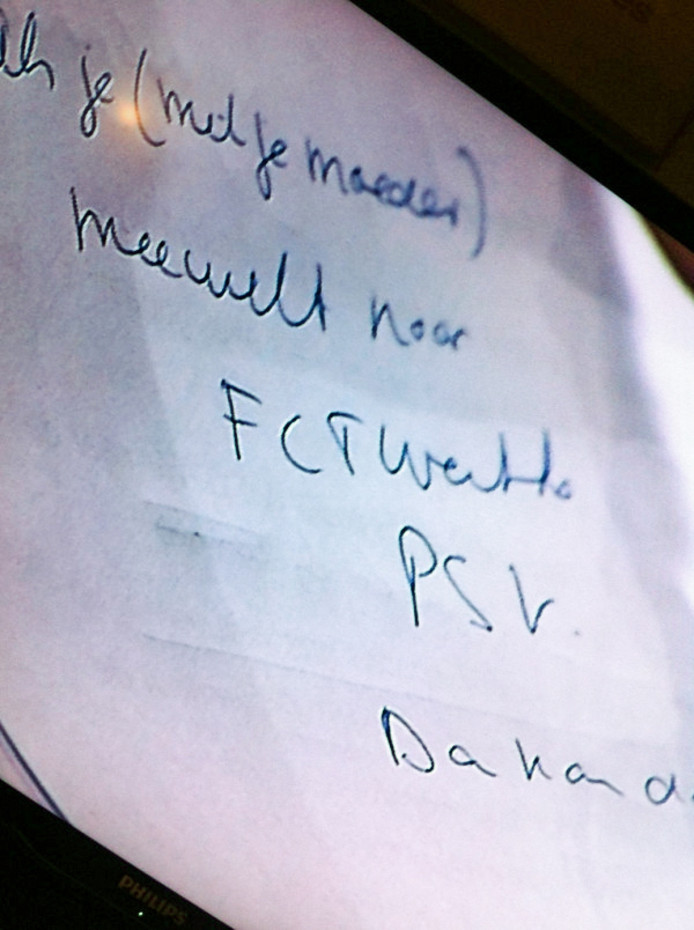 Als je (met je moeder)
meewilt naar
FC Twente
PSV.
Da kan d
PHILIPS